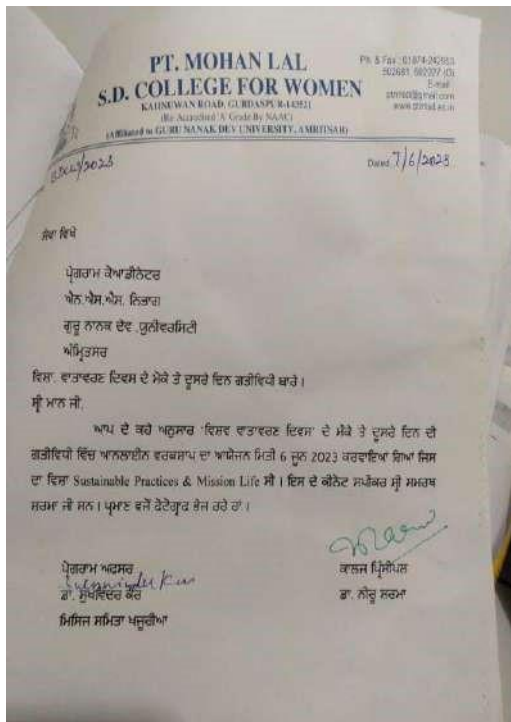 PT. MOHAN LAL
S.D. COLLEGE FOR WOMEN
KAHNUWAN ROAD, GURDASPUR-143521
(Re Accredited 'A' Grade By NAAC)
(Affiliated to GURU NANAK DEV UNIVERSITY, AMRITSAR)
Ph. & Fax : 01874-
E-mail
Dated 7/6/2023
ਸੇਵਾ ਵਿਖੇ
ਪ੍ਰੋਗਰਾਮ ਕੋਆਡੀਨੇਟਰ
ਐਨ.ਐਸ.ਐਸ. ਵਿਭਾਗ
ਗੁਰੂ ਨਾਨਕ ਦੇਵ .ਯੂਨੀਵਰਸਿਟੀ
ਅੰਮ੍ਰਿਤਸਰ
ਵਿਸ਼ਾ. ਵਾਤਾਵਰਣ ਦਿਵਸ ਦੇ ਮੌਕੇ ਤੇ ਦੂਸਰੇ ਦਿਨ ਗਤੀਵਿਧੀ ਬਾਰੇ।
ਸ਼੍ਰੀ ਮਾਨ ਜੀ.
ਆਪ ਦੇ ਕਹੇ ਅਨੁਸਾਰ 'ਵਿਸ਼ਵ ਵਾਤਾਵਰਣ ਦਿਵਸ' ਦੇ ਮੌਕੇ ਤੇ ਦੂਸਰੇ ਦਿਨ ਦੀ
ਗਤੀਵਿਧੀ ਵਿੱਚ ਆਨਲਾਈਨ ਵਰਕਸ਼ਾਪ ਦਾ ਆਯੋਜਨ ਮਿਤੀ 6 ਜੂਨ 2023 ਕਰਵਾਇਆ ਗਿਆ ਜਿਸ
ਦਾ ਵਿਸ਼ਾ Sustainable Practices & Mission Life ਸੀ। ਇਸ ਦੇ ਕੀਨੋਟ ਸਪੀਕਰ ਸ਼੍ਰੀ ਸਮਰਥ
ਸ਼ਰਮਾ ਜੀ ਸਨ। ਪ੍ਰਮਾਣ ਵਜੋਂ ਫੋਟੋਗ੍ਰਾਫ ਭੇਜ ਰਹੇ ਹਾਂ।
ਪ੍ਰੋਗਰਾਮ ਅਫਸਰ
ਕਾਲਜ ਪ੍ਰਿੰਸੀਪਲ
ਡਾ. ਸੁਖਵਿੰਦਰ ਕੌਰ
ਡਾ. ਨੀਰੂ ਸ਼ਰਮਾ
ਮਿਸਿਜ ਸਮਿਤਾ ਖਜੂਰੀਆ